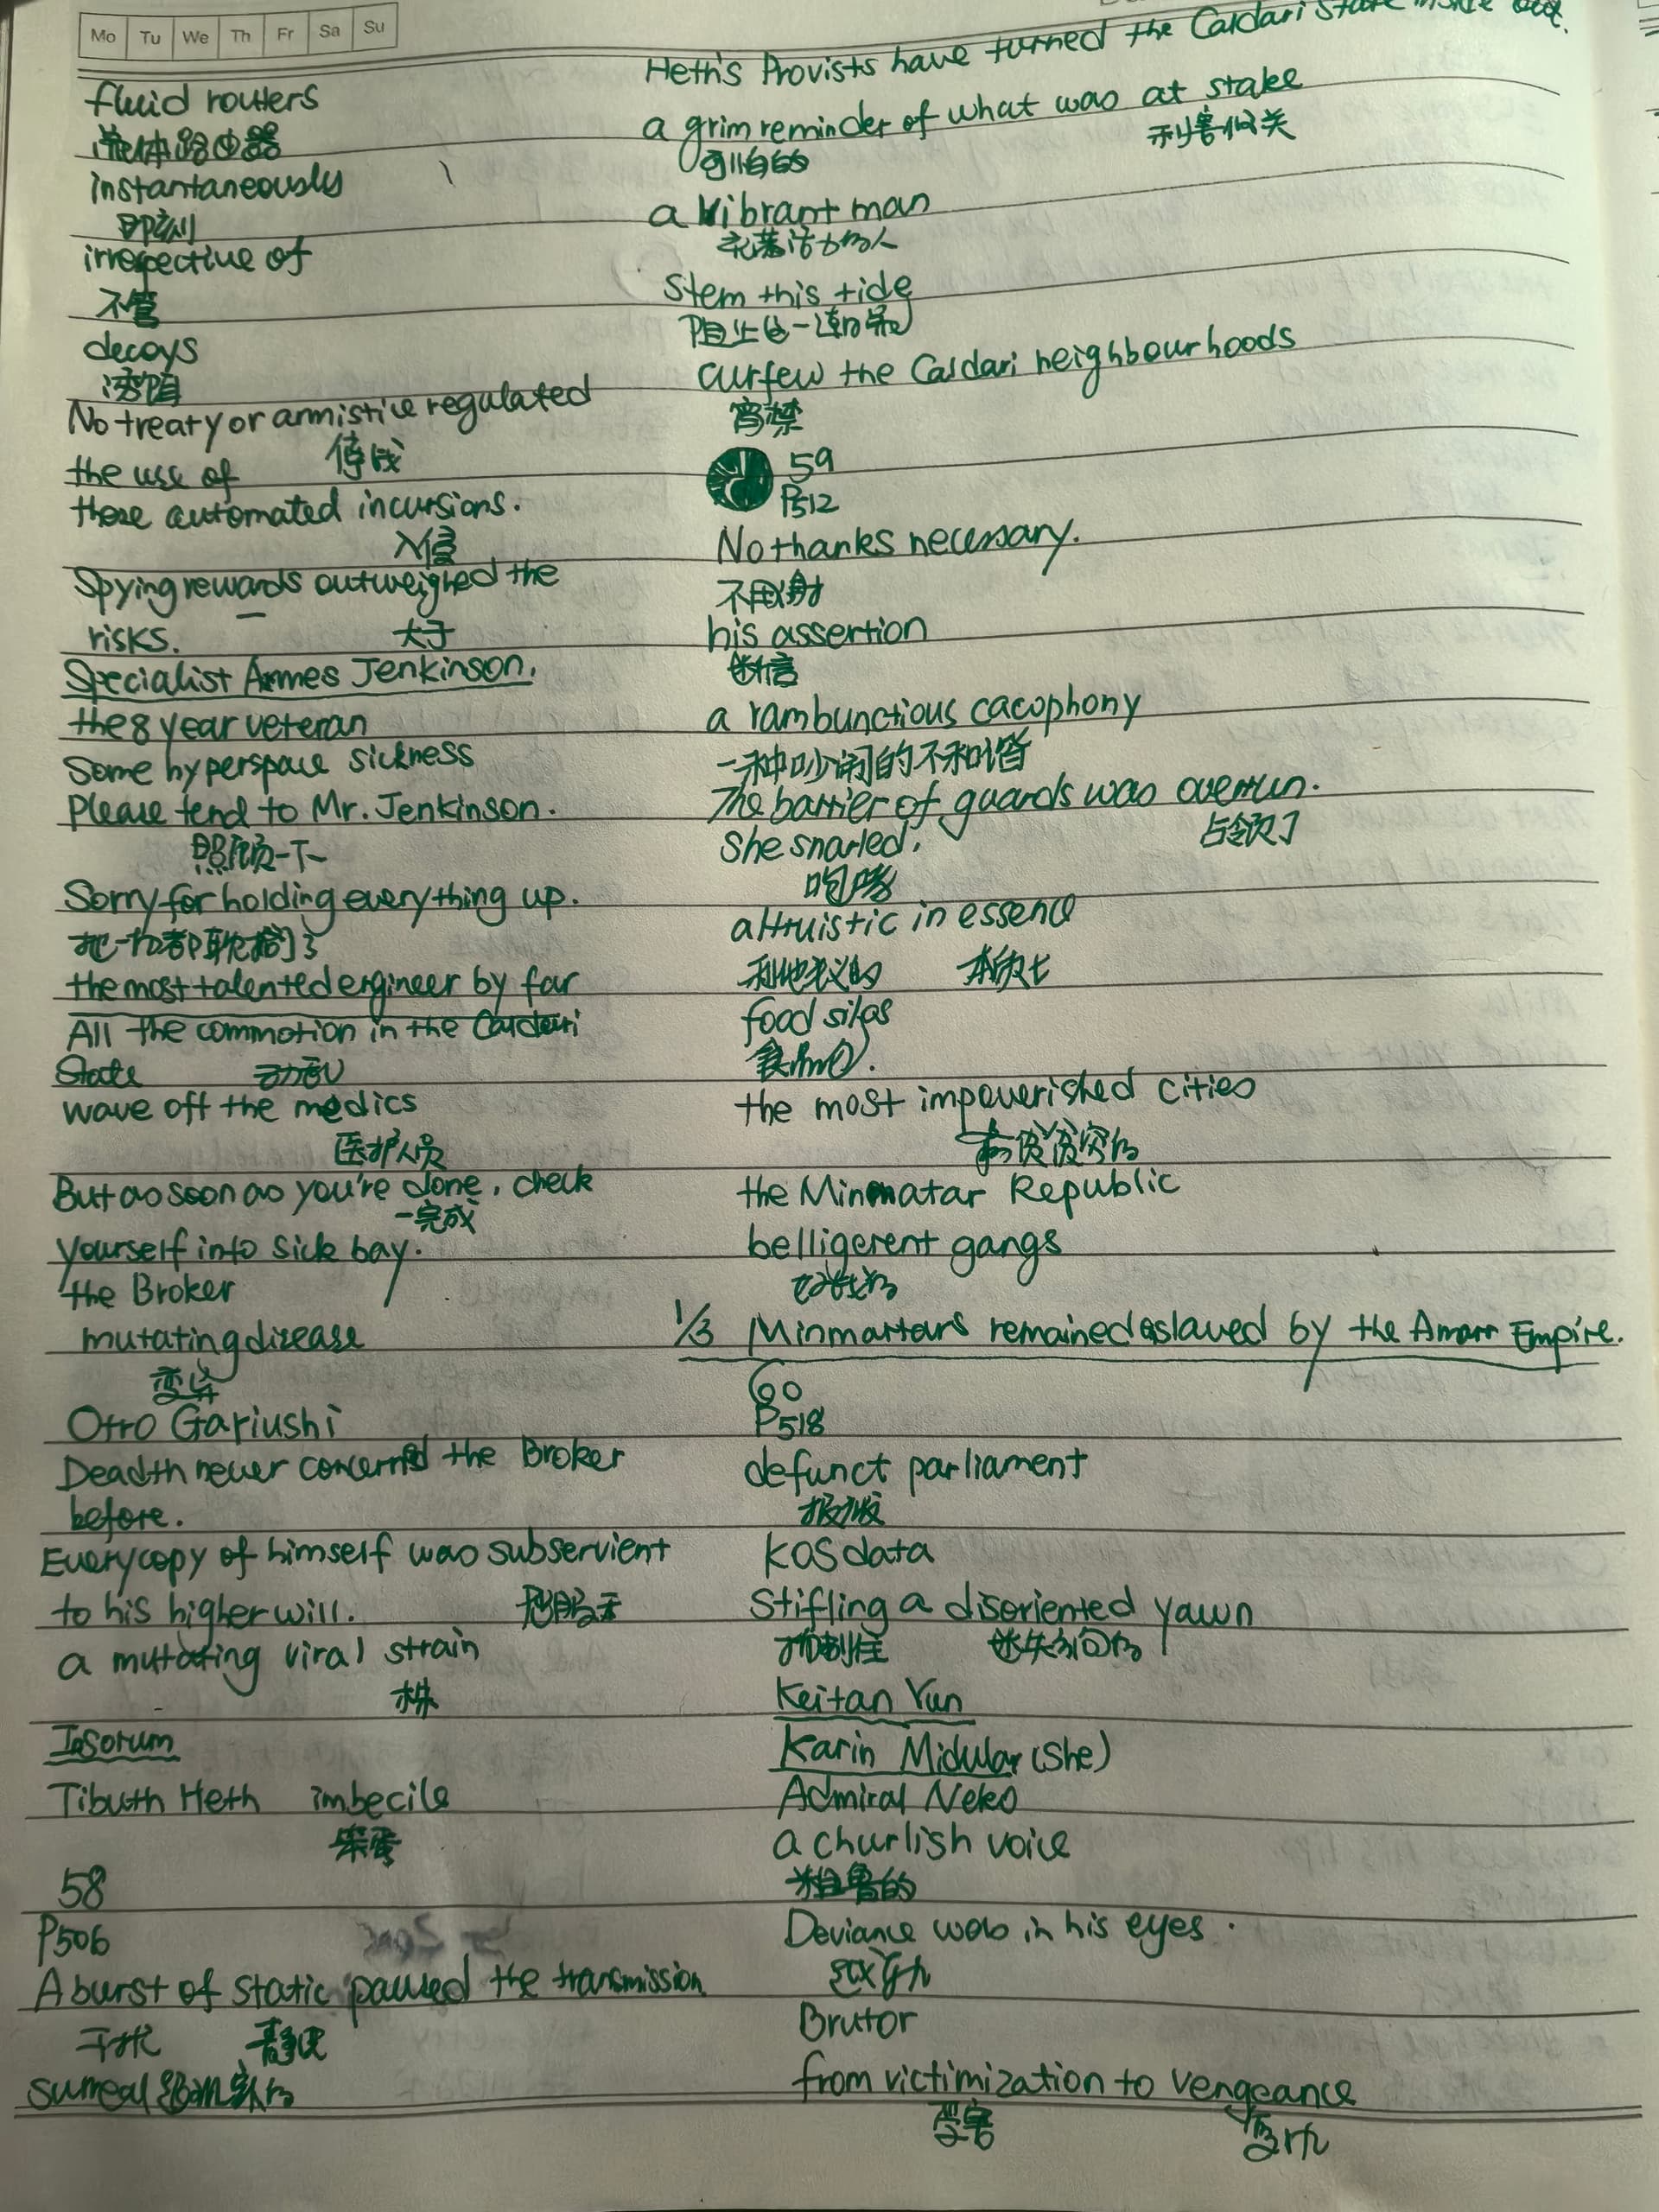 Mo Tu We Th Fr Sa Su
fluid routers
流体路由器
instantaneously
即刻
irrespective of
不管
decoys
诱饵
No treaty or armistice regulated
the use of 停战
those automated incursions.
入侵
Spying rewards outweighed the
risks. 大于
Specialist Armes Jenkinson.
the 8 year veteran
Some hyperspace sickness
Please tend to Mr. Jenkinson.
照顾一下
Sorry for holding everything up.
把一切都耽搁了
the most talented engineer by far
All the commotion in the Caldari
State 动乱
wave off the medics
医护人员
But as soon as you're done, check
一完成
yourself into sick bay.
the Broker
mutating disease
变异
Otro Gariushi
Deadth never concerned the Broker
before.
Every copy of himself was subservient
to his higher will.
a mutating viral strain
株
Isorum
Tibuth Heth imbecile
笨蛋
58
P506
A burst of static paused the transmission
干扰
surreal 超现实的
Heth's Provists have turned the Caldari State inside out.
a grim reminder of what was at stake
可怕的 利害攸关
a vibrant man
充满活力的人
Stem this tide
阻止这一潮流
curfew the Caldari neighbourhoods
宵禁
59
P512
No thanks necessary.
不用谢
his assertion
断言
a rambunctious cacophony
一种吵闹的不和谐
The barrier of guards was overrun.
占领了
She snarled.
咆哮
altruistic in essence
利他主义的 本质上
food silos
食物仓.
the most impoverished cities
贫穷的
the Minmatar Republic
belligerent gangs
好战的
1/3 Minmartars remained eslaved by the Amarr Empire.
60
P518
defunct parliament
报废
KOS data
Stifling a disoriented yawn
抑制住 迷失方向的
Keitan Yun
Karin Midular (She)
Admiral Neko
a churlish voice
粗鲁的
Deviance was in his eyes.
Brutor
from victimization to vengeance
受害 复仇